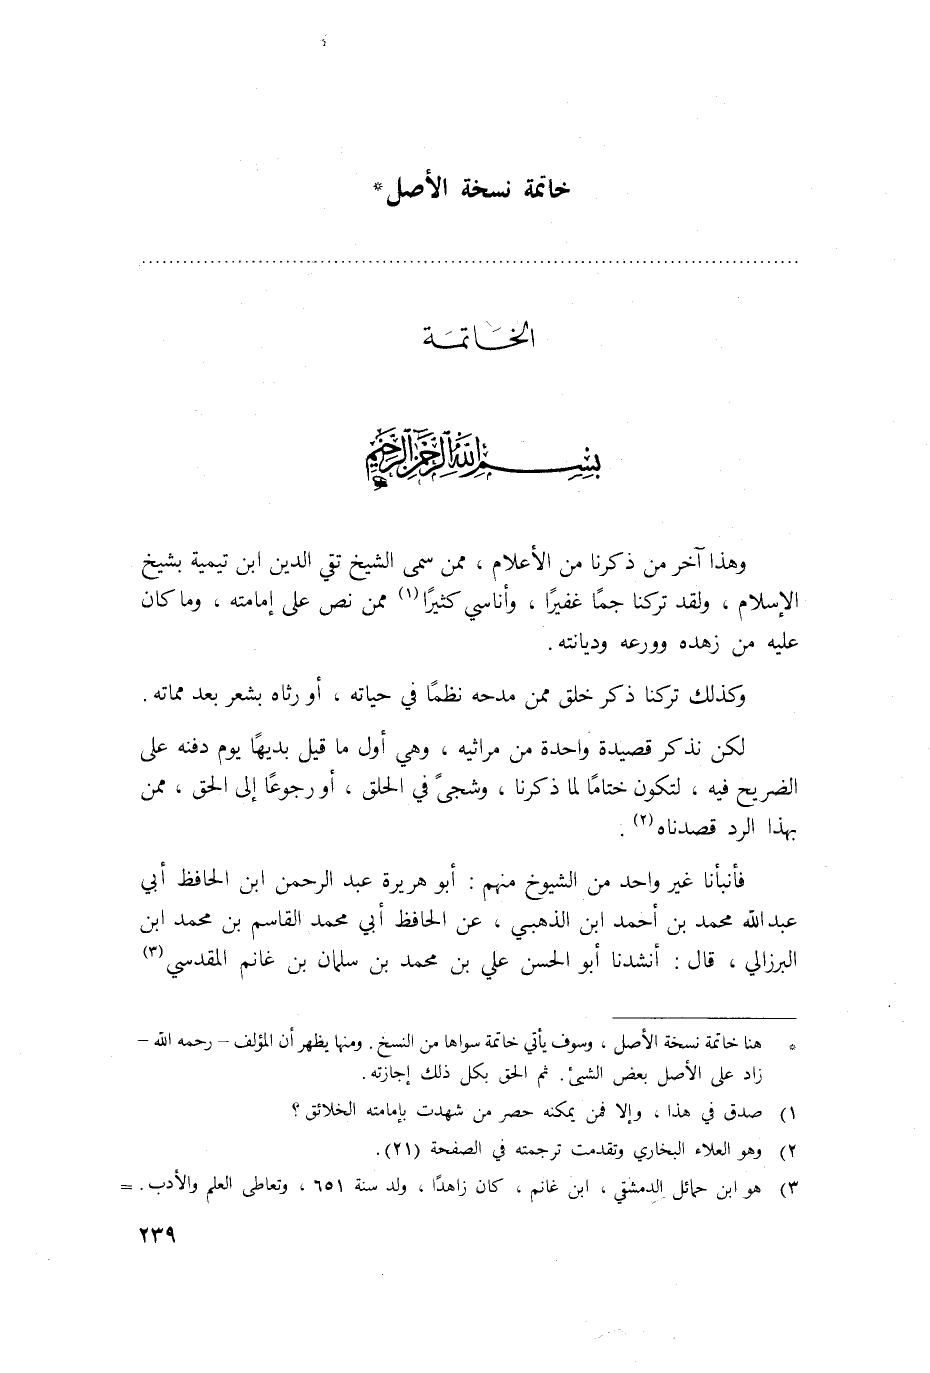 خاتمة نسخة الأصل*
الخَاتمَة
بسم الله الرحمن الرحيم
وهذا آخر من ذكرنا من الأعلام ، ممن سمى الشيخ تقي الدين ابن تيمية بشيخ
الإسلام ، ولقد تركنا جمًا غفيرًا ، وأناسي كثيرًا(١) ممن نص على إمامته ، وما كان
عليه من زهده وورعه وديانته .
وكذلك تركنا ذكر خلق ممن مدحه نظمًا في حياته ، أو رثاه بشعر بعد مماته .
لكن نذكر قصيدة واحدة من مراثيه ، وهي أول ما قيل بديهًا يوم دفنه على
الضريح فيه ، لتكون ختامًا لما ذكرنا ، وشجىً في الحلق ، أو رجوعًا إلى الحق ، ممن
بهذا الرد قصدناه(٢) .
فأنبأنا غير واحد من الشيوخ منهم : أبو هريرة عبد الرحمن ابن الحافظ أبي
عبد الله محمد بن أحمد ابن الذهبي ، عن الحافظ أبي محمد القاسم بن محمد ابن
البرزالي ، قال : أنشدنا أبو الحسن علي بن محمد بن سلمان بن غانم المقدسي(٣)
* هنا خاتمة نسخة الأصل ، وسوف يأتي خاتمة سواها من النسخ . ومنها يظهر أن المؤلف – رحمه الله –
زاد على الأصل بعض الشيئ . ثم الحق بكل ذلك إجازته .
١) صدق في هذا ، وإلا فمن يمكنه حصر من شهدت بإمامته الخلائق ؟
٢) وهو العلاء البخاري وتقدمت ترجمته في الصفحة (٢١) .
٣) هو ابن حمائل الدمشقي ، ابن غانم ، كان زاهدًا ، ولد سنة ٦٥١ ، وتعاطى العلم والأدب . =
٢٣٩